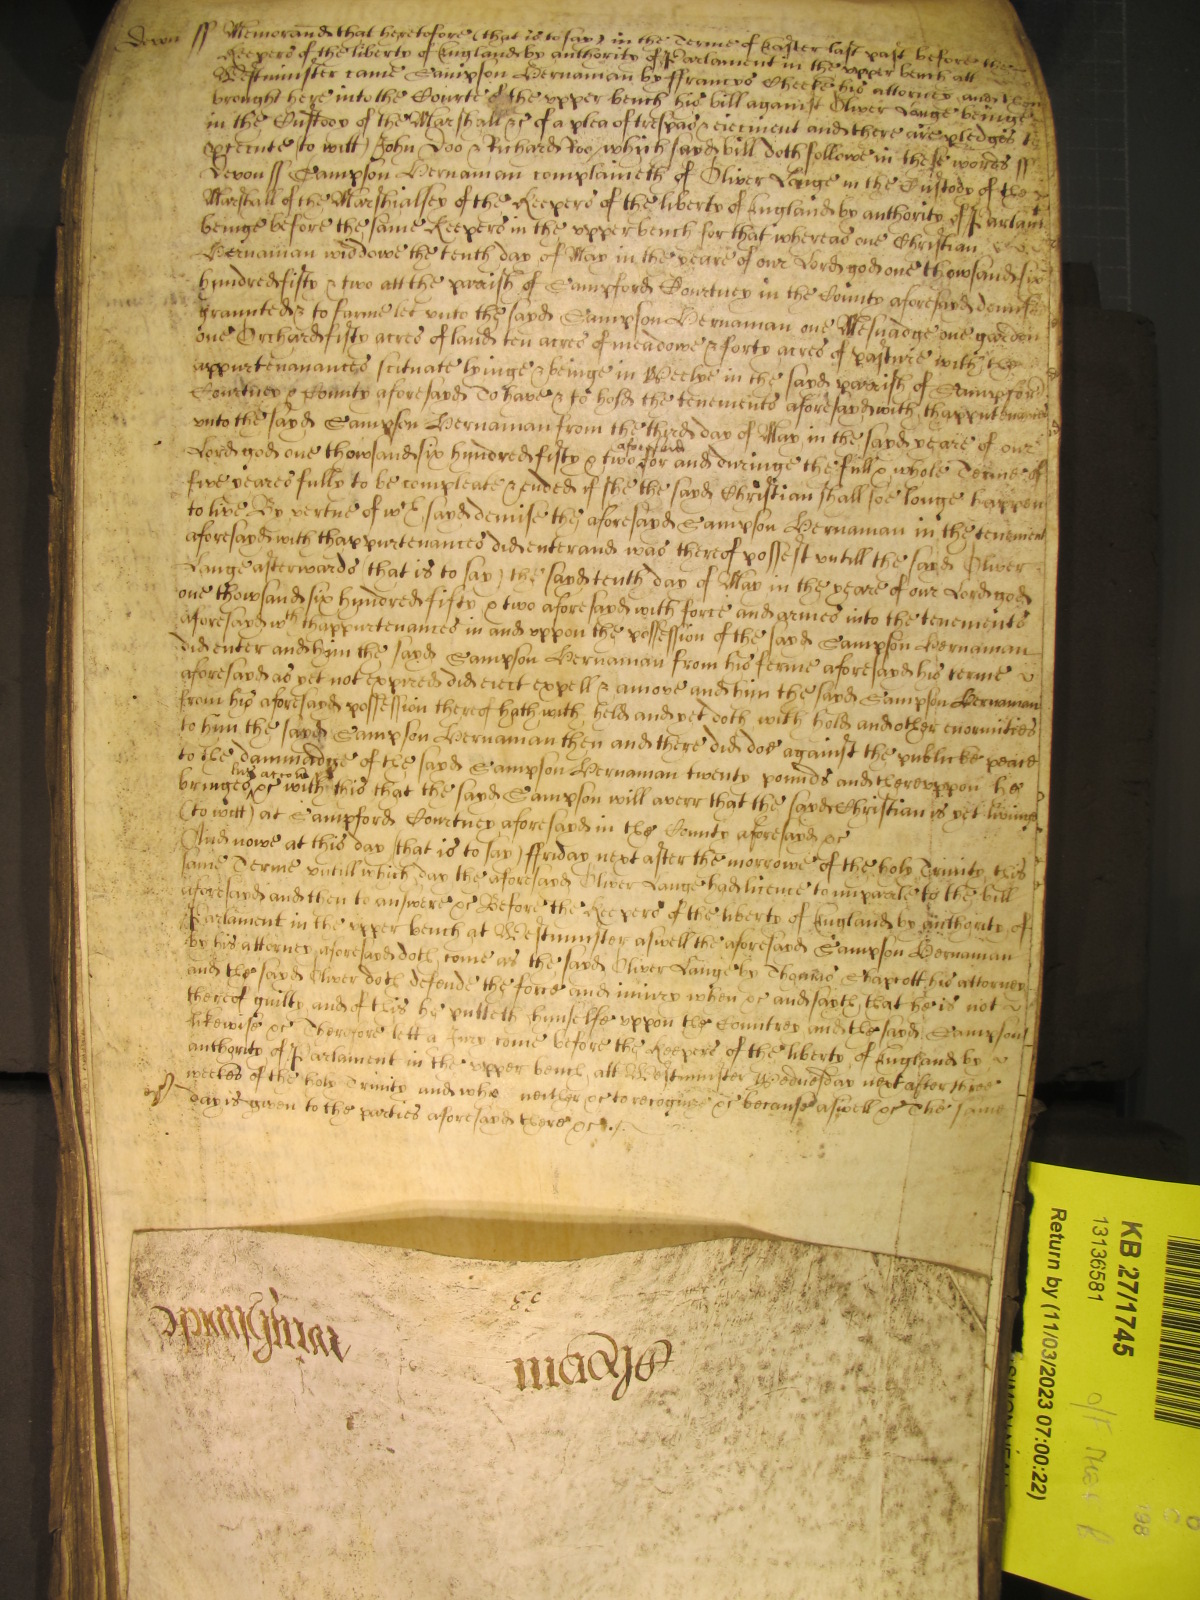 Devon ss Memorand that heretofore (that is to say) in the Terme of Easter last past before the
Keepers of the liberty of England by authority of Parlament in the upper bench att
Westminster came Sampson Hernaman by ffrancys Cheeke his attorney and then
brought here into the Courte of the upper bench his bill against Oliver Lange beinge
in the Custody of the Marshall &c of a plea of trespas & eiectment and there are pledges to
psecute (to witt) John Doo & Richard Roo which sayd bill doth followe in these words ss
Devon ss Sampson Hernaman complaineth of Oliver Lange in the Custody of the
Marshall of the Marshialsey of the Keepers of the liberty of England by authority of Parlamt
beinge before the same Keepers in the upper bench for that whereas one Christian
Hernaman widdowe the tenth day of May in the yeare of our Lord god one thowsand six
hundred fifty & two att the parish of Sampford Courtney in the County aforesayd demised
graunted & to farme lett unto the sayd Sampson Hernaman one Mesuadge one garden
one Orchard fifty acres of land ten acres of meadowe & forty acres of pasture with the
appurtenanances scituate lyinge & beinge in in the sayd parish of Sampford
Courtney & County aforesayd To have & to hold the tenements aforesayd with thappurtenances
unto the sayd Sampson Hernaman from the third day of May in the sayd yeare of our
Lord god one thowsand six hundred fifty & two aforesaid for and duringe the full & whole Terme of
five yeares fully to be compleate & ended if she the sayd Christian shall soe longe happen
to live By vertue of wch sayd demise the aforesayd Sampson Hernaman in the tenements
aforesayd with thappurtenances did enter and was thereof possest untill the sayd Oliver
Lange afterwards that is to say) the sayd tenth day of May in the yeare of our Lord god
one thowsand six hundred fifty & two aforesayd with force and armes into the tenements
aforesayd wth thappurtenances in and uppon the possession of the sayd Sampson Hernaman
did enter and him the sayd Sampson Hernaman from his ferme aforesayd his terme
aforesayd as yet not expired did eiect expell & amove and him the sayd Sampson Hernaman
from his aforesayd possession thereof hath with held and yet doth with hold and other enormities
to him the sayd Sampson Hernaman then and there did doe against the publicke peace
to the dammadge of the sayd Sampson Hernaman twenty pounds and thereuppon he
bringes his accon &c with this that the sayd Sampson will averr that the sayd Christian is yet livinge
(to witt) at Sampford Courtney aforesayd in the County aforesayd &c
And nowe at this day (that is to say) ffriday next after the morrowe of the holy Trinity this
same Terme untill which day the aforesayd Oliver Lange had licence to imparle to the bill
aforesayd and then to answere &c Before the Keepers of the liberty of England by authority of
Parlament in the upper bench at Westminster aswell the aforesayd Sampson Hernaman
by his attorney aforesayd doth come as the sayd Oliver Lange by Thomas Shapcott his attorney
and the sayd Oliver doth defende the force and iniury when &c and sayth that he is not
thereof guilty and of this he putteth himselfe uppon the Countrey and the sayd Sampson
likewise &c Therefore lett a Jury come before the Keepers of the liberty of England by
authority of Parlament in the upper bench att Westminster Wednesday next after three
weekes of the holy Trinity and who neither &c to recognize &c because aswell &c The same
day is given to the parties aforesayd there &c
KB 27/1745
13136581
Return by (11/03/2023 07:00:22)